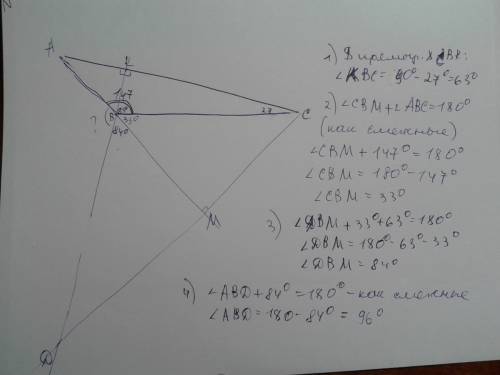 A
147
63°
27
C
B
33°
?
84°
M
D
1) В прямоуг. CBK:
∠KBC = 90° - 27° = 63°
2) ∠CBM + ∠ABC = 180°
(как смежные)
∠CBM + 147° = 180°
∠CBM = 180° - 147°
∠CBM = 33°
3) ∠DBM + 33° + 63° = 180°
∠DBM = 180° - 63° - 33°
∠DBM = 84°
4) ∠ABD + 84° = 180° - как смежные
∠ABD = 180 - 84° = 96°